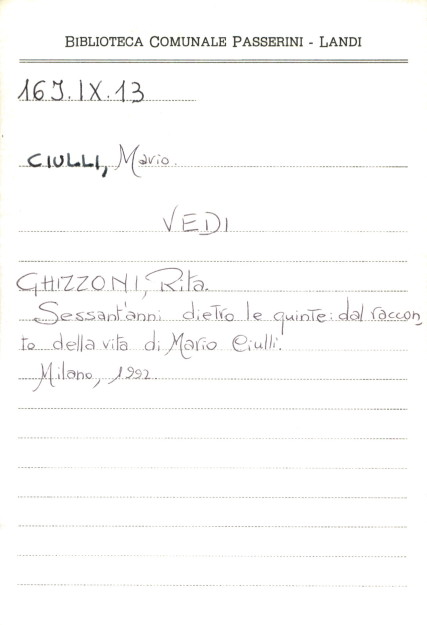 BIBLIOTECA COMUNALE PASSERINI - LANDI
16J.IX.13
CIULLI, Mario.
VEDI
GHIZZONI, Rita.
Sessant'anni dietro le quinte: dal raccon
to della vita di Mario Ciulli.
Milano, 1992.